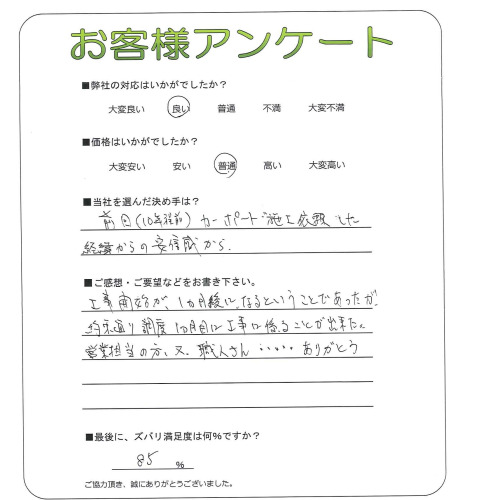 お客様アンケート
■弊社の対応はいかがでしたか？
大変良い 良い 普通 不満 大変不満
■価格はいかがでしたか？
大変安い 安い 普通 高い 大変高い
■当社を選んだ決め手は？
前回(10年程前) カーポート施工依頼した
経緯からの安信感から.
■ご感想・ご要望などをお書き下さい。
工事開始が、1ヵ月後になるということであったが
約束通り 調度 1ヵ月目に工事に係ることが出来た。
営業担当の方、又、職人さん ‥‥‥ ありがとう
■最後に、ズバリ満足度は何％ですか？
85 ％
ご協力頂き、誠にありがとうございました。